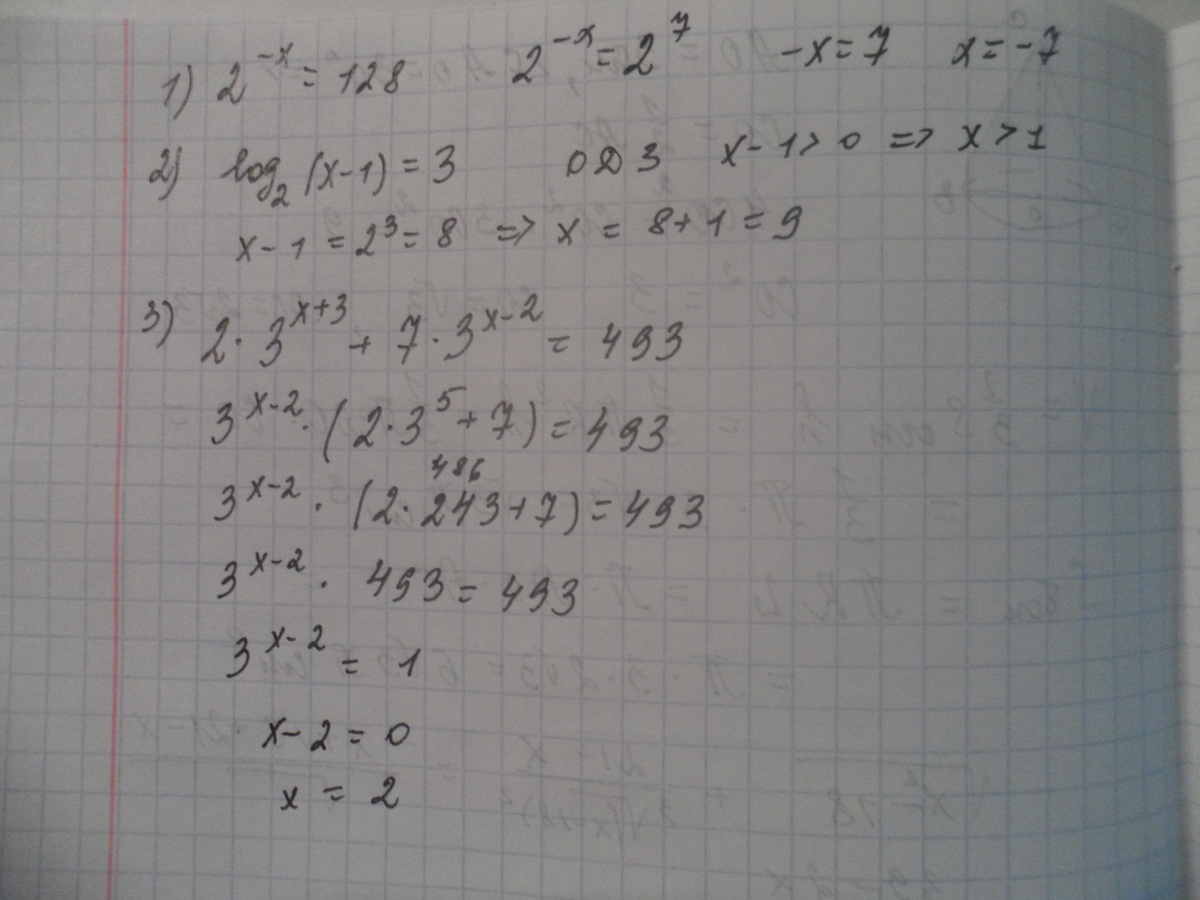 1) 2^{-x} = 128 2^{-x} = 2^7 -x = 7 x = -7
2) log_2 (x-1) = 3 ОДЗ x-1>0 => x>1
x-1 = 2^3 = 8 => x = 8+1 = 9
3) 2·3^{x+3} + 7·3^{x-2} = 493
3^{x-2}·(2·3^5+7) = 493
486
3^{x-2}·(2·243+7) = 493
3^{x-2}·493 = 493
3^{x-2} = 1
x-2 = 0
x = 2